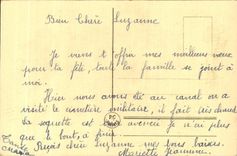 Bien Chère Suzanne
Je viens t'offrir mes meilleurs voeux
pour ta fête, toute la famille se joint à
moi.
Hier nous avons été au canal on a
visité le cimetière militaire, il fait très chaud
la soquette est avancée Je n'ai plus
que le bout, à finir
Reçois chère Suzanne mes bons baisers
Mariette Jeannine